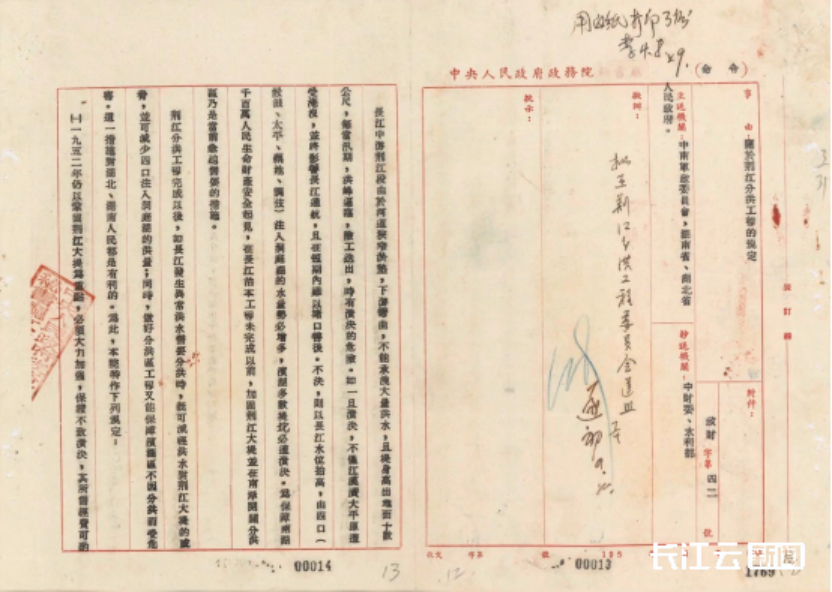 中央人民政府政務院
(命令)
事由:
關於荆江分洪工程的規定
主送機關:
中南軍政委員會,湖南省、湖北省
人民政府。
抄送機關:
中財委、水利部
附件:
政財
字第
四二
號
擬辦:
批示:
收文
字第
號
195
00013
12
1769
長江云新聞
長江中游荆江段由於河道狹窄淤墊,下游彎曲,不能承洩大量洪水,且堤身高出地面十數
公尺,每當汛期,洪峰逼臨,險工迭出,時有潰決的危險。如一旦潰決,不僅江漢廣大平原遭
受淹沒,並將影響長江通航,且在短期內難以堵口善後。不決,則以長江水位抬高,由四口(
太平、藕池、調弦)注入洞庭湖的水量勢必增多,濱湖多數堤垸必遭潰決。為保障兩湖
千百萬人民生命財產安全起見,在長江治本工程未完成以前,加固荆江大堤並在南岸開闢分洪
區乃是當前急迫需要的措施。
荆江分洪工程完成以後,如長江發生異常洪水需要分洪時,既可減輕洪水對荆江大堤的威
脅,並可減少四口注入洞庭湖的洪量;同時,做好分洪區工程又能保障濱湖區不因分洪而受危
害。這一措施對湖北、湖南人民都是有利的。為此,本院特作下列規定:
㈠一九五二年仍以鞏固荆江大堤為重點,必須大力加強,保證不致潰決,其所需經費可酌
00014
13